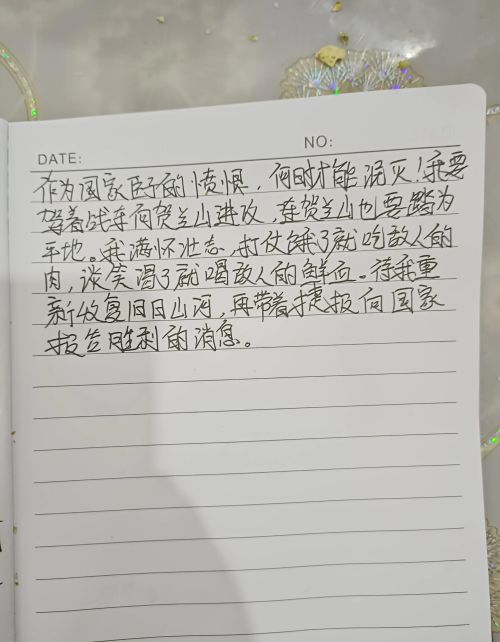 DATE:
NO:
作为国家臣子的愤恨，何时才能泯灭！我要
驾着战车向贺兰山进攻，连贺兰山也要踏为
平地。我满怀壮志，打仗饿了就吃敌人的
肉，谈笑渴了就喝敌人的鲜血。待我重
新收复旧日山河，再带着捷报向国家
报告胜利的消息。